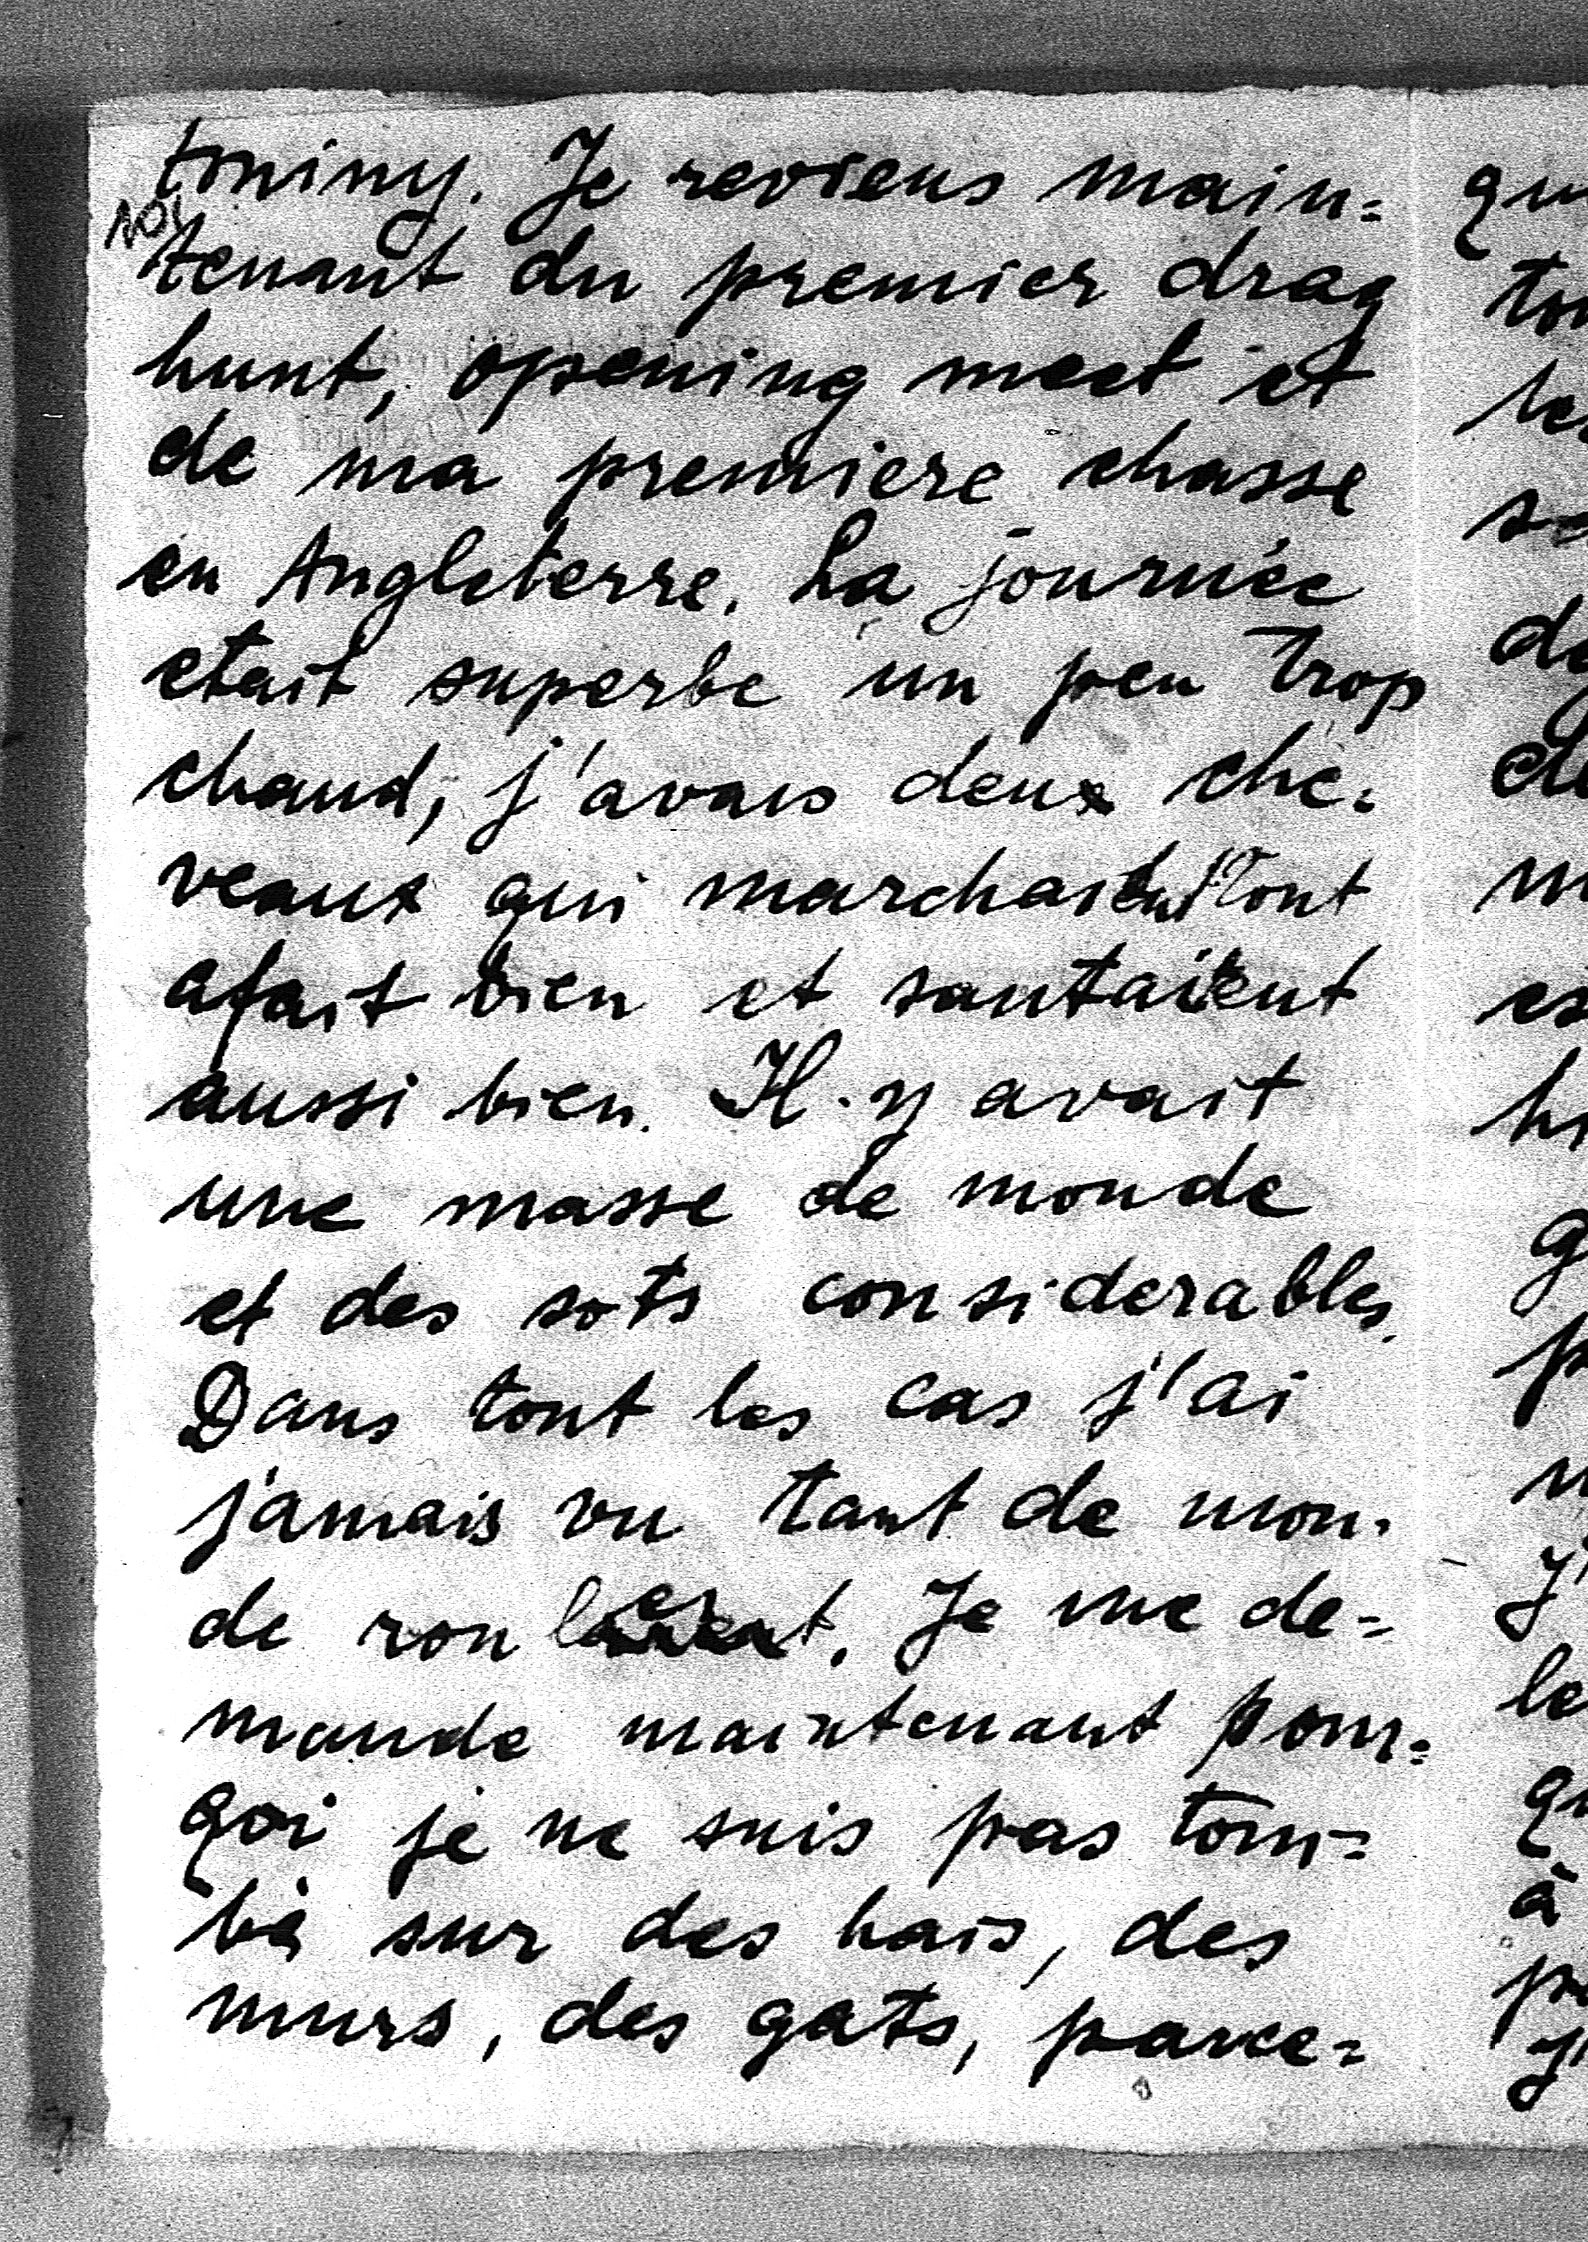 toniny. Je reviens main=
tenant du premier drag
hunt, opening meet et
de ma premiere chasse
en Angleterre. La journée
etait superbe un peu trop
chaud, j'avais deux che=
veaux qui marchaient tout
afait bien et sautaient
aussi bien. Il y avait
une masse de monde
et des sots considerables.
Dans tout les cas j'ai
jamais vu tant de mon-
de rouler. Je me de=
mande maintenant pour=
qoi je ne suis pas tom=
bé sur des hais, des
murs, des gats, parce=